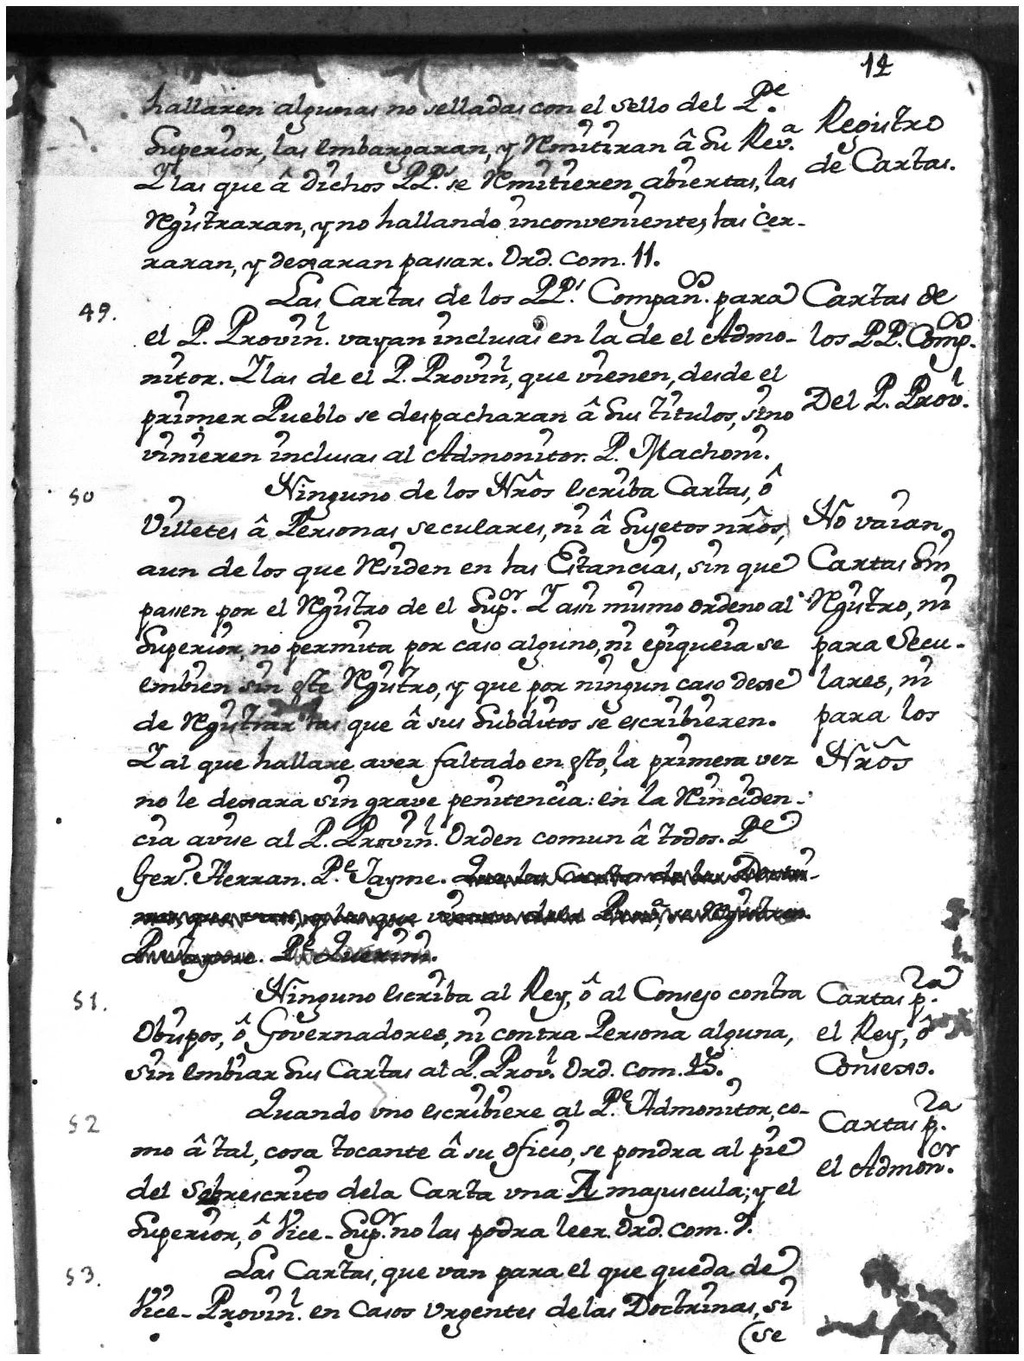 14
hallaren algunas no selladas con el sello del Pe.
Superior, las embargaran, y Rmitiran â Su Reva.
Y las que â dichos PPs. se Rmitieren abiertas, las
Rgistraran, y no hallando inconveniente, las cer-
raran, y dexaran passar. Ord. com. 11.
Registro
de Cartas.
49.
Las Cartas de los PPs. Compaños. para
el P. Provinl. vayan inclusas en la de el Admo-
nitor. Y las de el P. Provinl, que vienen, desde el
primer Pueblo se despacharan â sus titulos, si no
vinieren inclusas al Admonitor. P. Machoni.
Cartas de
los PP. Comps.
Del P. Provl.
50
Ninguno de los Nrôs escriba Cartas, ô
Villetes â Personas seculares, ni â Sujetos nrôs,
aun de los que Rsiden en las Estancias, sin que
passen por el Rgistro de el Supor. Y assi mismo ordeno al
Superior, no permita por caso alguno, ni epiqueia se
embien sin este Rgistro, y que por ningun caso dexe
de Rgistrar las que â sus Subditos se escribieren.
Y al que hallare aver faltado en esto, la primera vez
no le dexara sin grave penitencia: en la Rinciden-
cia avise al P. Provinl. Orden comun â todos. Pe
Ger. Herran. Pe. Jayme.
Pe. Querini.
No vaian
Cartas Sin
Rgistro, ni
para Secu-
lares, ni
para los
Nrôs
51.
Ninguno escriba al Rey, ô al Consejo contra
Obispos, ô Governadores, ni contra Persona alguna,
sin embiar sus Cartas al P. Provl. Ord. com.
Cartas pra.
el Rey, ô
Consexo.
52
Quando vno escribiere al Pe. Admonitor, co-
mo â tal, cosa tocante â su oficio, se pondra al pie
del sobrescrito dela Carta vna A majuscula; y el
Superior, ô Vice-Supor. no las podra leer. Ord. com. 9.
Cartas pra.
el Admonor.
53.
Las Cartas, que van para el que queda de
Vice-Provinl. en casos vrgentes de las Doctrinas, si
(se